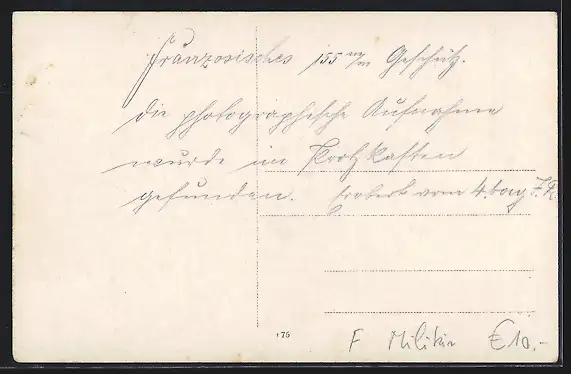 Französisches 155 m/m Geschütz.
Die photographische Aufnahme
wurde im Protzkasten
gefunden. Erobert vom 4. bay. I. R.
176
F Militär €10.-